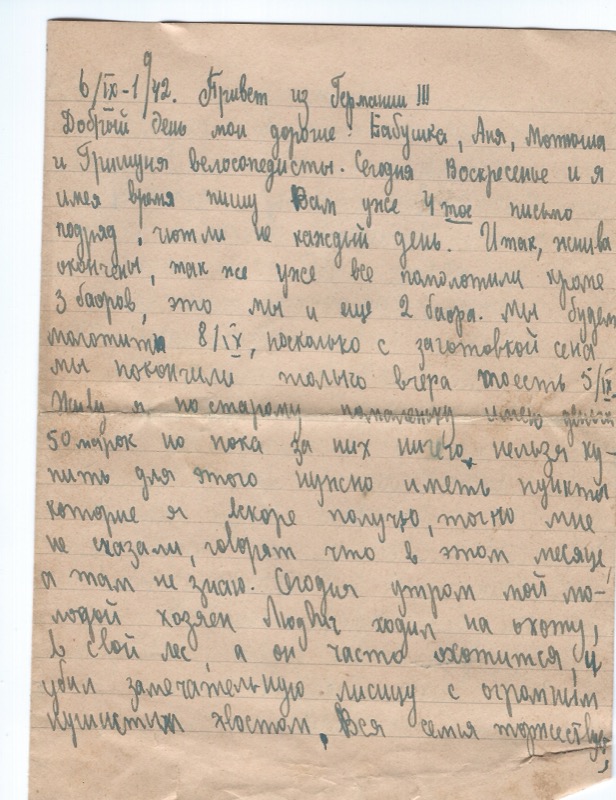 6/IX-1942. Привет из Германии !!!
Добрый день мои дорогие: Бабушка, Аня, Мотюша
и Гришуня велосопедисты. Сегодня Воскресенье и я
имея время пишу Вам уже 4тое письмо
подряд, чютли не каждый день. Итак, жнива
окончены, так же уже все помолотили кроме
3 баоров, это мы и еще 2 баора. Мы будем
молотить 8/IX, посколько с заготовкой сена
мы покончили только вчера тоесть 5/IX.
Живу я по старому помаленьку имею деньги
50 марок но пока за них ничего нельзя ку-
пить для этого нужно иметь пункты
которие я вскоре получю, точно мне
не сказали, говорят что в этом месяце,
а там не знаю. Сегодня утром мой мо-
лодой хозяен Людвиг ходил на охоту,
в свой лес, а он часто охотится, и
убил замечательную лисицу с огромним
пушистим хвостом, Вся семья торжествует